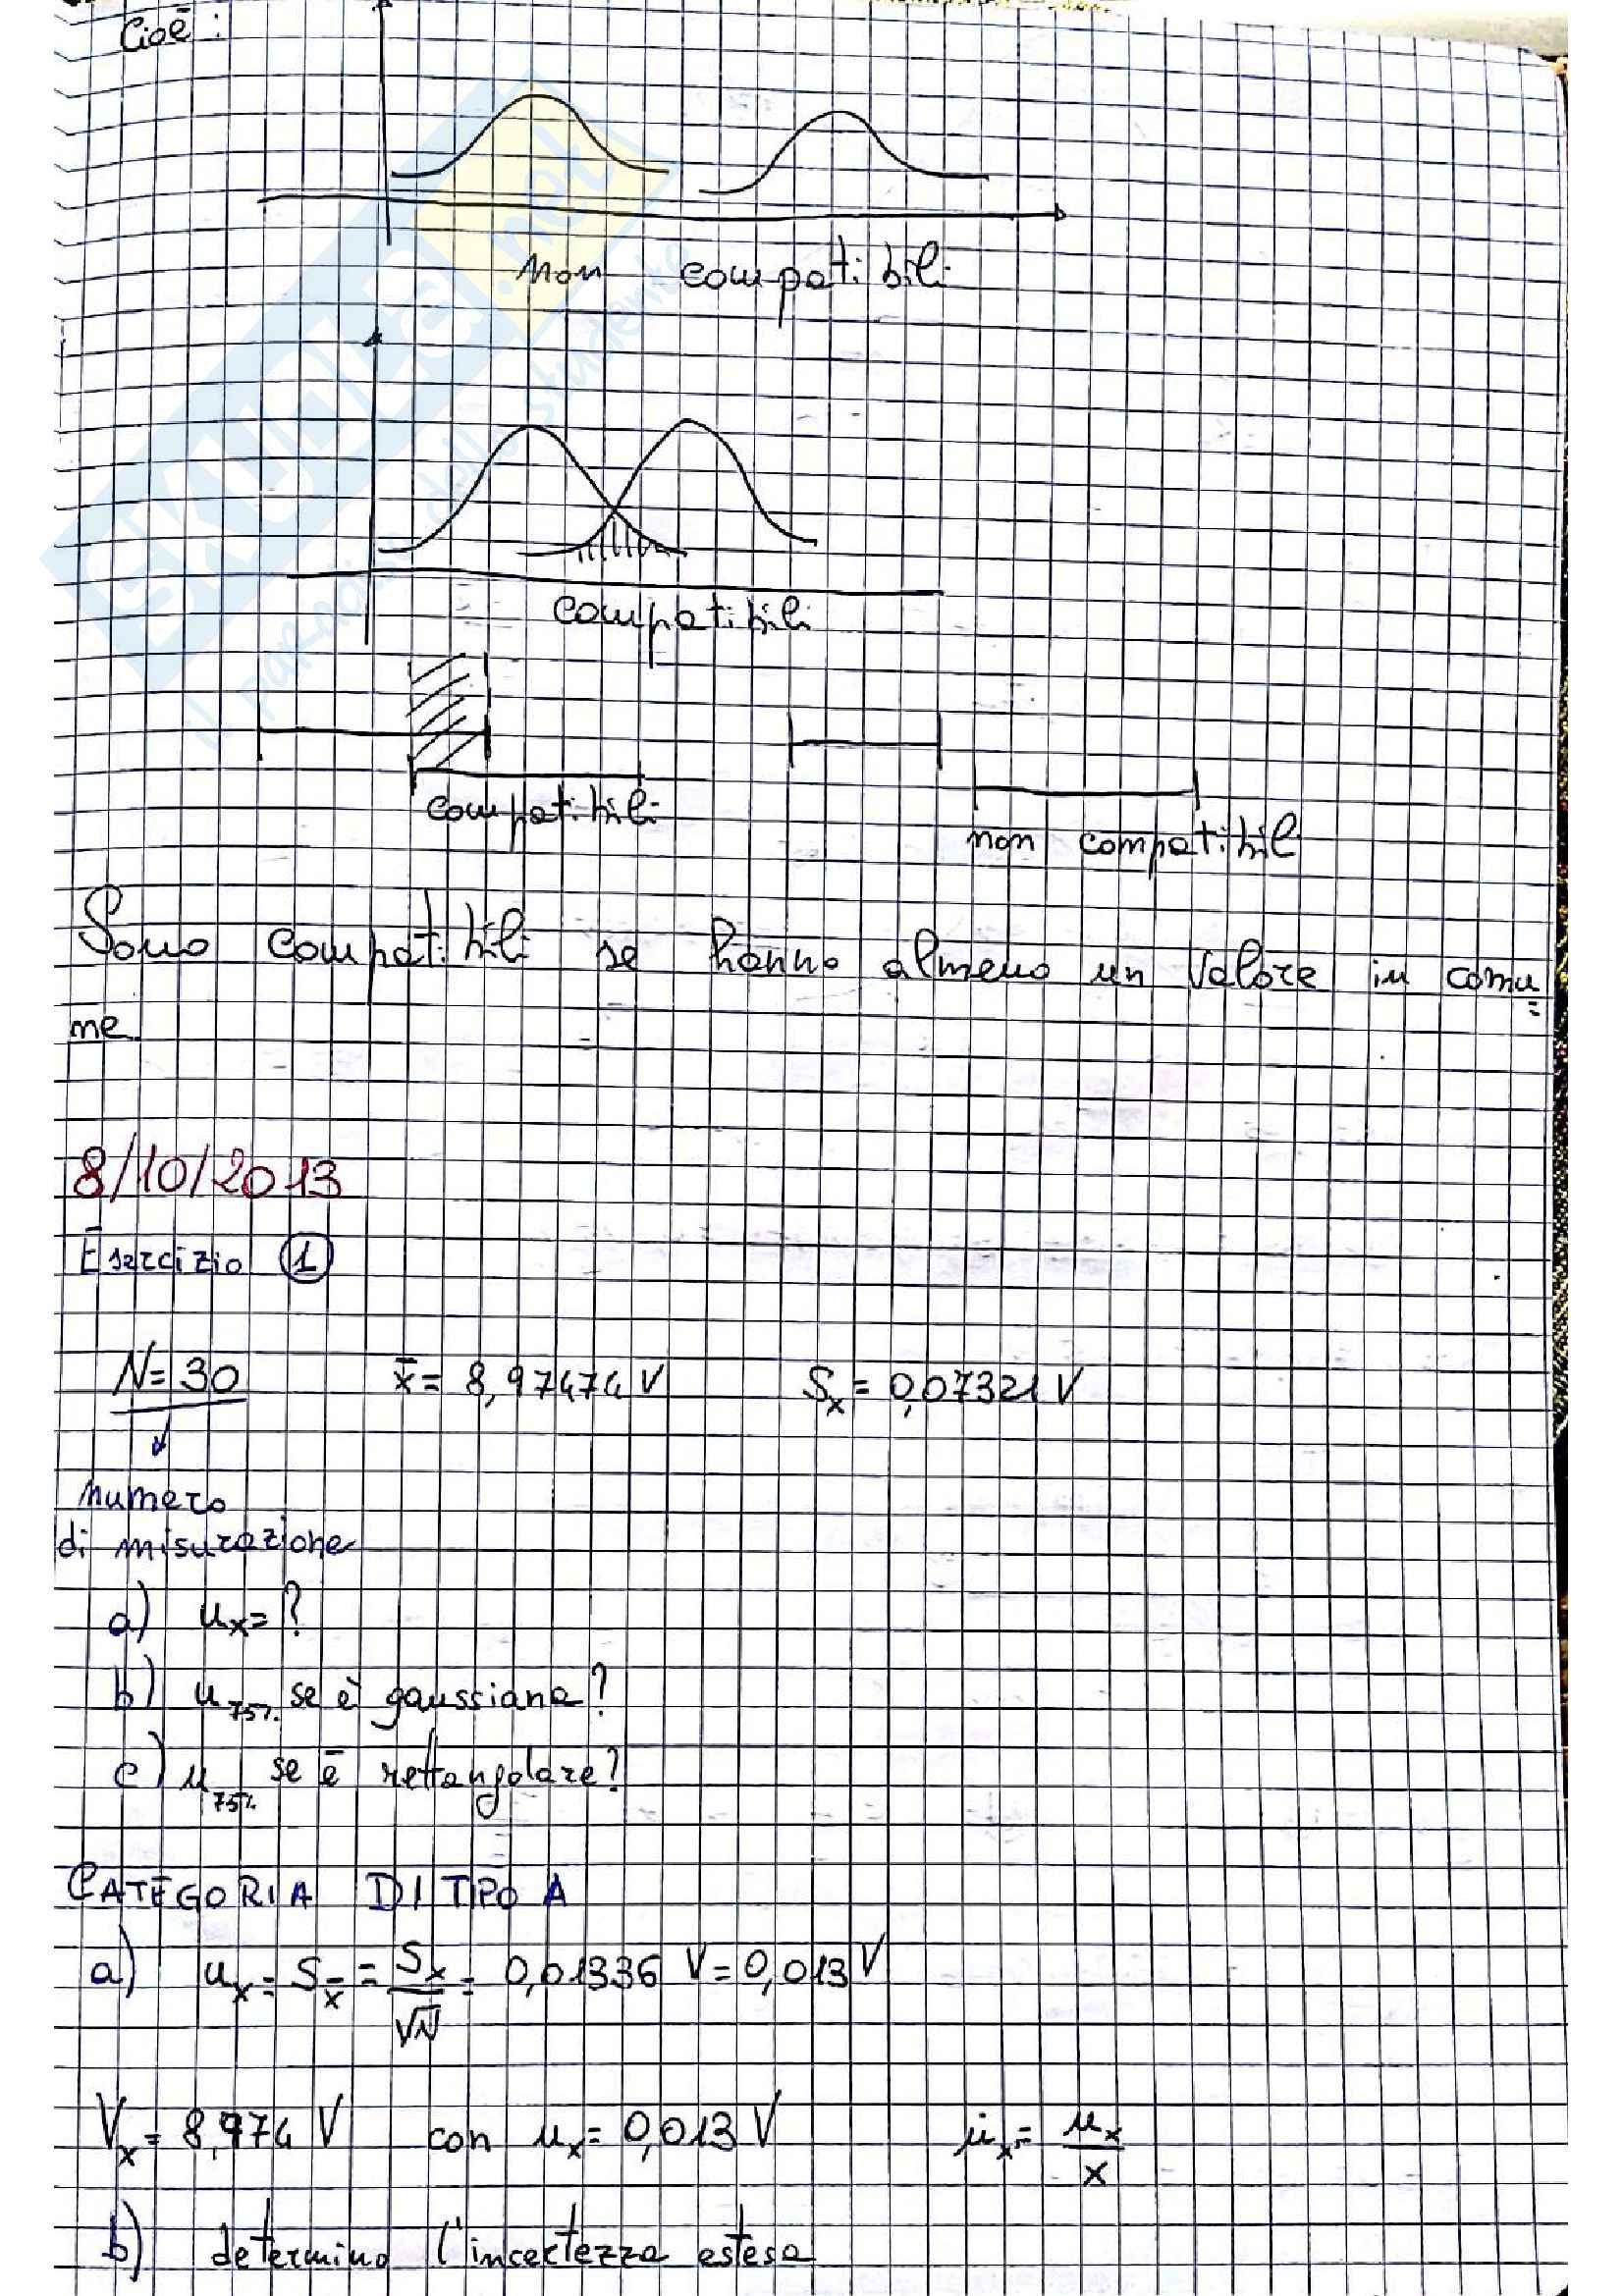 Cioē :
Non compatibili
compatibili
compatibili
non compatibil
Sono compatibili se hanno almeno un valore in comu
ne
8/10/2013
Esercizio 1
N=30 x̄= 8,97474 V Sx = 0,07321 V
numero
di misurazione
a) ux= ?
b) u75% se è gaussiana?
c) u75% se ē rettangolare?
CATEGORIA DI TIPO A
a) ux = Sx̄ = Sx/√N = 0,01336 V = 0,013 V
Vx = 8,974 V con ux = 0,013 V u̇x = ux/x
b) determino l'incertezza estesa
SKUOLA.net
il paradiso dello studente